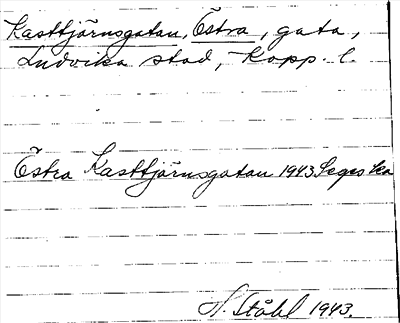 Kasttjärnsgatan, Östra, gata,
Ludvika stad, Kopp. l.
Östra Kasttjärnsgatan 1943 Seges ka
H. Ståhl 1943.